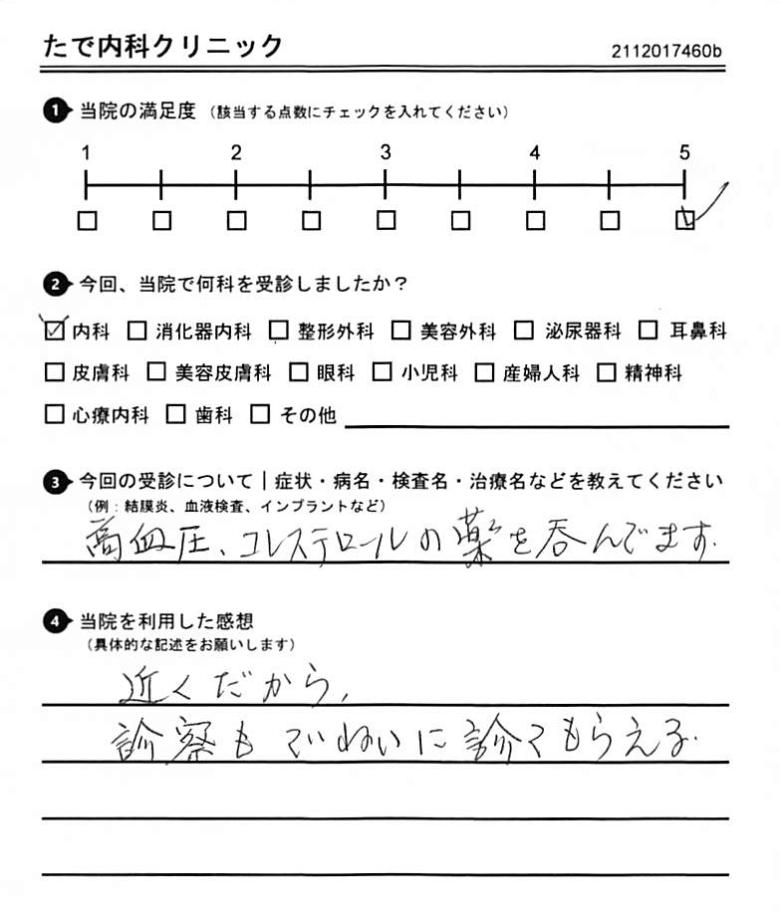 たで内科クリニック 2112017460b
1 当院の満足度 (該当する点数にチェックを入れてください)
1 2 3 4 5
2 今回、当院で何科を受診しましたか?
内科 消化器内科 整形外科 美容外科 泌尿器科 耳鼻科
皮膚科 美容皮膚科 眼科 小児科 産婦人科 精神科
心療内科 歯科 その他
3 今回の受診について|症状・病名・検査名・治療名などを教えてください
(例:結膜炎、血液検査、インプラントなど)
高血圧、コレステロールの薬を呑んでます.
4 当院を利用した感想
(具体的な記述をお願いします)
近くだから,
診察もていねいに診てもらえる.